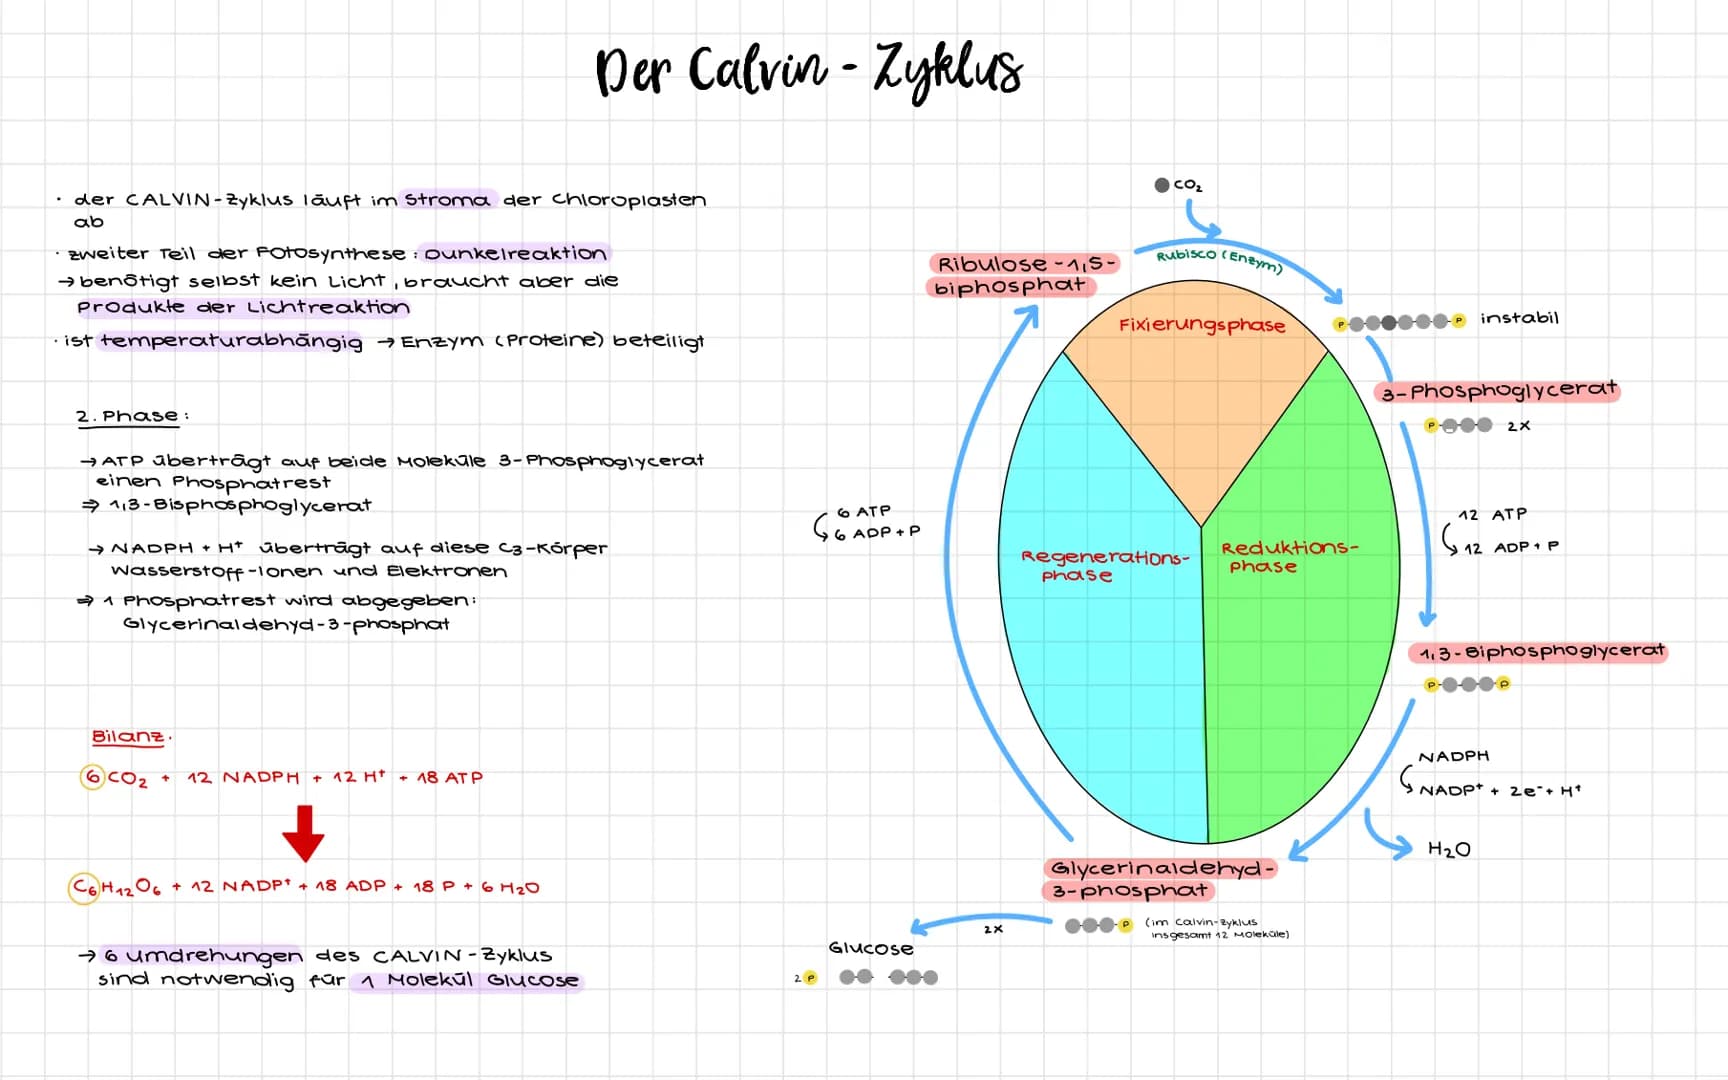 Der Calvin - Zyklus
· der CALVIN-Zyklus läuft im Stroma der Chloroplasten
ab
· zweiter Teil der Fotosynthese: Dunkelreaktion
→ benötigt selbst kein Licht, braucht aber die
Produkte der Lichtreaktion
· ist temperaturabhängig → Enzym (Proteine) beteiligt
2. Phase:
→ ATP überträgt auf beide Moleküle 3-Phosphoglycerat
einen Phosphatrest
⇒ 1,3-Bisphosphoglycerat
→ NADPH + H⁺ überträgt auf diese C3-Körper
Wasserstoff-Ionen und Elektronen
⇒ 1 Phosphatrest wird abgegeben:
Glycerinaldehyd-3-phosphat
Bilanz.
6 CO₂ + 12 NADPH + 12 H⁺ + 18 ATP
C₆H₁₂O₆ + 12 NADP⁺ + 18 ADP + 18 P + 6 H₂O
→ 6 umdrehungen des CALVIN-Zyklus
sind notwendig für 1 Molekül Glucose
CO₂
Rubisco (Enzym)
Ribulose-1,5-
biphosphat
Fixierungsphase
P P instabil
3-Phosphoglycerat
P 2x
6 ATP
6 ADP + P
12 ATP
12 ADP + P
Regenerations-
phase
Reduktions-
phase
1,3-Biphosphoglycerat
P P
NADPH
NADP⁺ + 2e⁻ + H⁺
H₂O
Glycerinaldehyd-
3-phosphat
P (im Calvin-Zyklus
insgesamt 12 Moleküle)
2x
Glucose
2 P